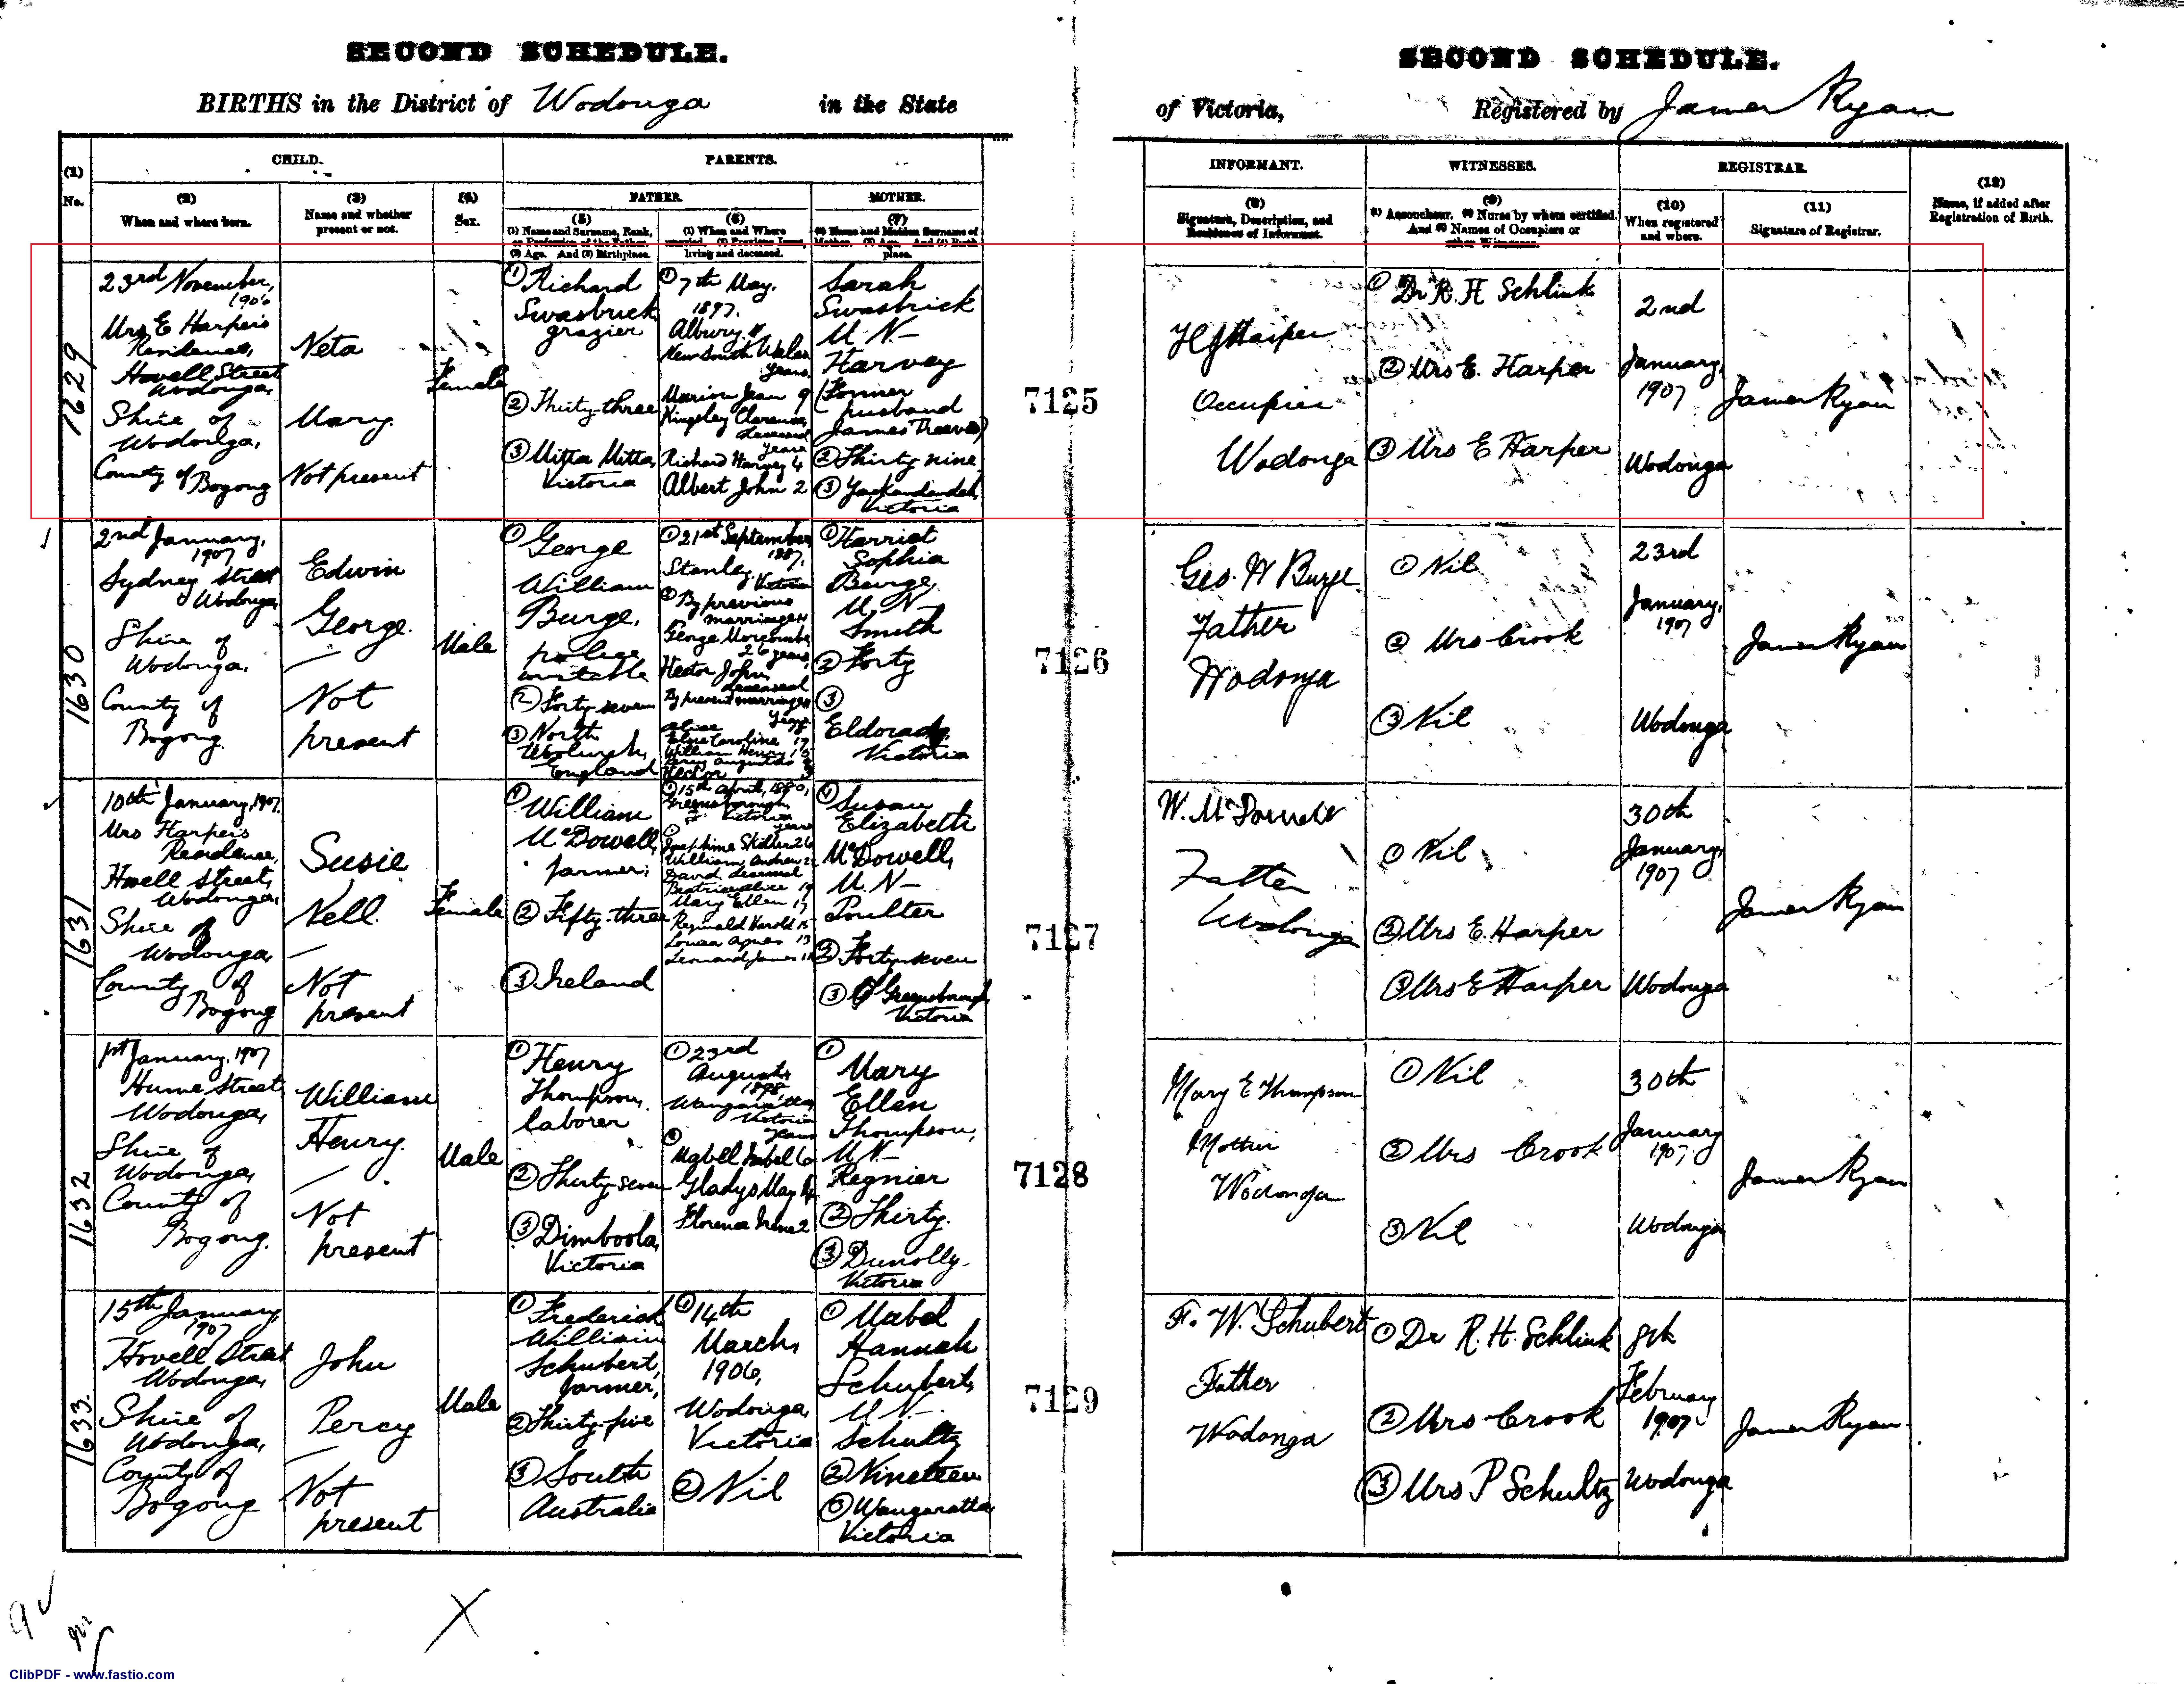 SECOND SCHEDULE.
BIRTHS in the District of Wodonga in the State
CHILD.
PARENTS.
(1)
No.
(2)
When and where born.
(3)
Name and whether
present or not.
(4)
Sex.
FATHER.
MOTHER.
(5)
(1) Name and Surname, Rank,
or Profession of the Father.
(2) Age. And (3) Birthplace.
(6)
(1) When and Where
married. (2) Previous Issue,
living and deceased.
(7)
(1) Name and Maiden Surname of
Mother. (2) Age. And (3) Birth
place.
1629
23rd November,
1906
Mrs E Harper's
Residence,
Hovell Street
Wodonga,
Shire of
Wodonga,
County of Bogong
Neta
Mary.
Not present
Female
① Richard
Swasbrick
grazier
② Thirty-three
③ Mitta Mitta,
Victoria
① 7th May,
1897.
Albury
New South Wales
years
Marion Jean 9
Kingsley Clarence,
deceased
years
Richard Harvey 4
Albert John 2
Sarah
Swasbrick
M.N–
Harvey
(Former
husband
James Reeves)
② Thirty nine
③ Yackandandah,
Victoria
7125
1630
2nd January,
1907
Sydney Street
Wodonga,
Shire of
Wodonga.
County of
Bogong.
Edwin
George.
–
Not
present
Male
① George
William
Burge,
police
constable
② Forty-seven
③ North
Woolwich,
England
① 21st September
1887,
Stanley,
Victoria
② By previous
marriage
George Morcombe
26 years,
Hector John,
deceased
By present marriage
years
Alice 18
Elsie Caroline 17
William Henry 15
Percy Augustus
Hector
① Harriet
Sophia
Burge,
M.N–
Smith
② Forty
③
Eldorado,
Victoria
7126
1631
10th January, 1907.
Mrs Harper's
Residence,
Hovell Street,
Wodonga,
Shire of
Wodonga,
County of
Bogong
Susie
Nell.
–
Not
present
Female
① William
McDowell,
farmer,
② Fifty-three
③ Ireland
① 15th April, 1880,
Greensborough,
Victoria
② years
Josephine Skilter 26
William Andrew 2
David, deceased
Beatrice Alice 19
Mary Ellen 17
Reginald Harold 15
Louisa Agnes 13
Leonard James 11
① Susan
Elizabeth
McDowell,
M.N–
Poulter
② Forty-seven
③ Greensborough,
Victoria
7127
1632
1st January, 1907
Hume Street,
Wodonga,
Shire of
Wodonga,
County of
Bogong.
William
Henry.
–
Not
present
Male
① Henry
Thompson,
laborer
② Thirty seven
③ Dimboola,
Victoria
① 23rd
August,
1898,
Wangaratta,
Victoria
② years
Mabell Isabel 6
Gladys May 4
Florence Irene 2
①
Mary
Ellen
Thompson,
M.N–
Regnier
② Thirty.
③ Dunolly.
Victoria
7128
1633.
15th January,
1907
Hovell Street
Wodonga,
Shire of
Wodonga,
County of
Bogong
John
Percy
–
Not
present
Male
① Frederick
William
Schubert,
farmer,
② Thirty-five
③ South
Australia
① 14th
March,
1906,
Wodonga,
Victoria
② Nil
① Mabel
Hannah
Schubert,
M.N–
Schultz
② Nineteen
③ Wangaratta
Victoria
7129
SECOND SCHEDULE.
of Victoria, Registered by James Ryan
INFORMANT.
WITNESSES.
REGISTRAR.
(8)
Signature, Description, and
Residence of Informant.
(9)
(1) Accoucheur. (2) Nurse by whom certified.
And (3) Names of Occupiers or
other Witnesses.
(10)
When registered
and where.
(11)
Signature of Registrar.
(12)
Name, if added after
Registration of Birth.
H J Harper
Occupier
Wodonga
① Dr R. H Schlink
② Mrs E. Harper
③ Mrs E Harper
2nd
January,
1907
Wodonga
James Ryan
Geo. W Burge
Father
Wodonga
① Nil
② Mrs Crook
③ Nil
23rd
January,
1907
Wodonga
James Ryan
W. McDowell
Father
Wodonga
① Nil
② Mrs E. Harper
③ Mrs E Harper
30th
January,
1907
Wodonga
James Ryan
Mary E Thompson
Mother
Wodonga
① Nil
② Mrs Crook
③ Nil
30th
January
1907.
Wodonga
James Ryan
F. W. Schubert
Father
Wodonga
① Dr R. H. Schlink
② Mrs Crook
③ Mrs P Schultz
8th
February
1907
Wodonga
James Ryan
ClibPDF - www.fastio.com